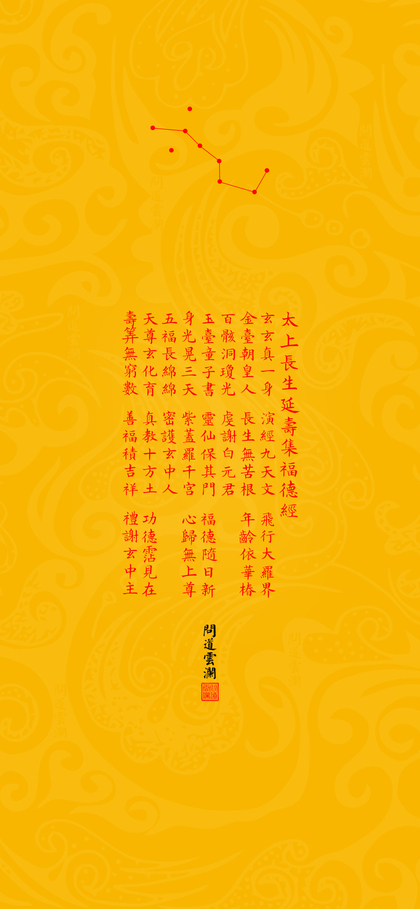 太上長生延壽集福德經
玄玄真一身 演經九天文 飛行大羅界
金臺朝皇人 長生無苦根 年齡依華椿
百骸洞瓊光 虔謝白元君
玉臺童子書 靈仙保其門 福德隨日新
身光晃三天 紫蓋羅千宮 心歸無上尊
五福長綿綿 密護玄中人
天尊玄化育 真教十方土 功德霑見在
壽筭無窮數 善福積吉祥 禮謝玄中主
問道雲瀾